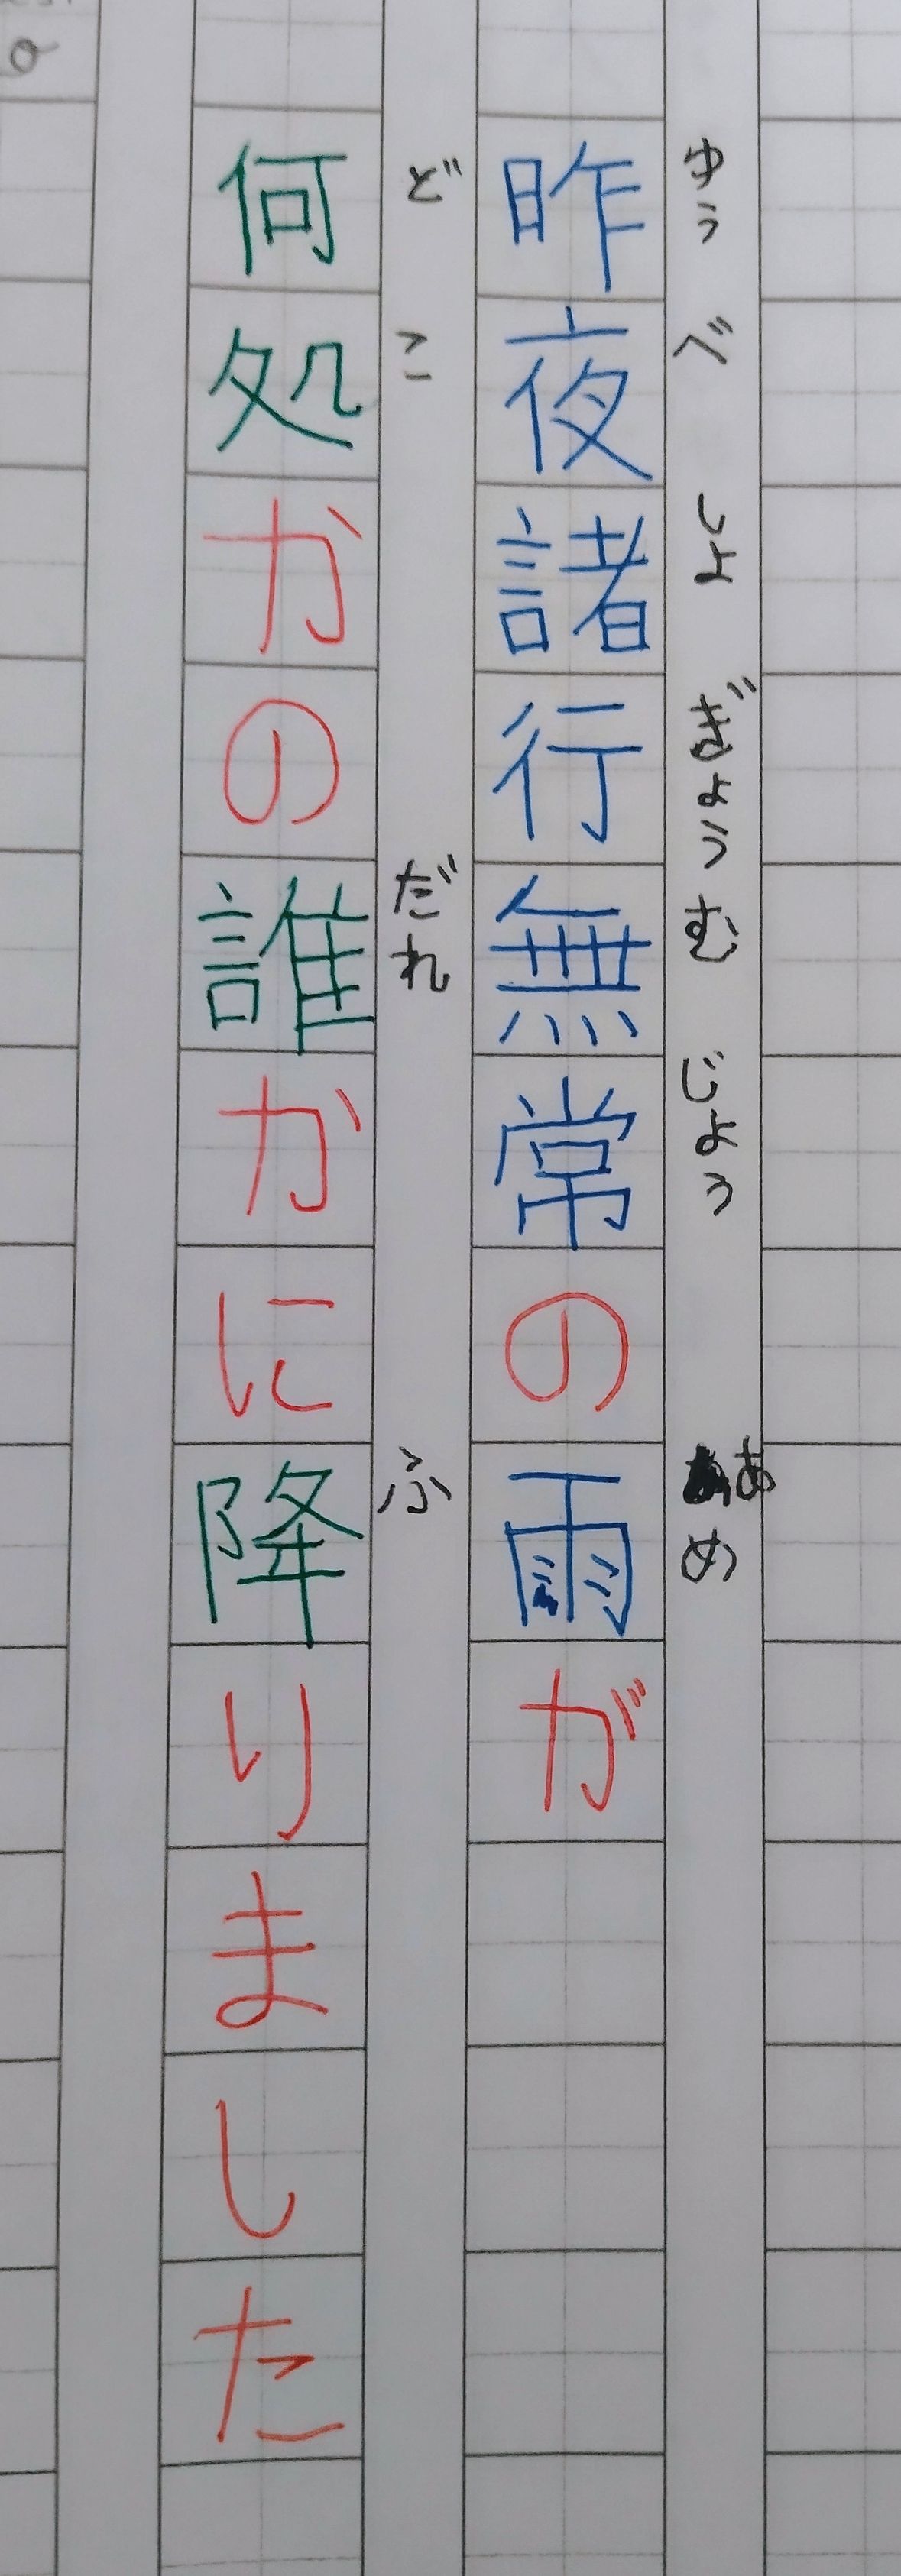 昨夜諸行無常の雨が
ゆうべしょぎょうむじょうあめ
何処かの誰かに降りました
どこだれふ